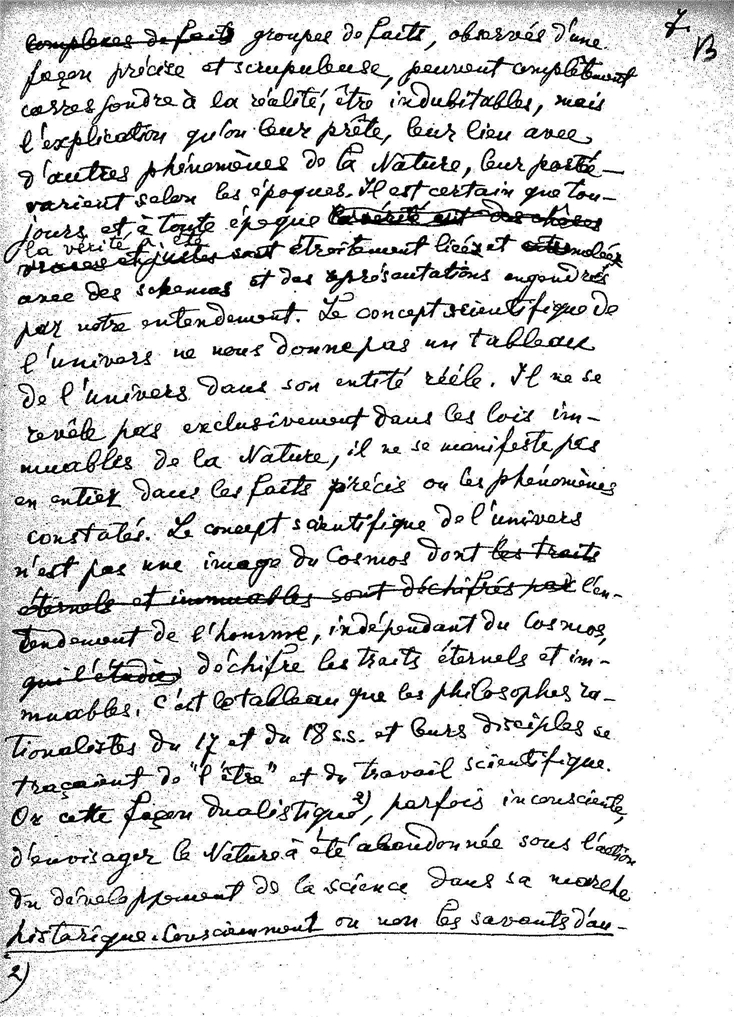 7.
B
complexes de faits groupes de faits, observés d'une
façon précise et scrupuleuse, peuvent complètement
correspondre à la réalité, être indubitables, mais
l'explication qu'on leur prête, leur lien avec
d'autres phénomènes de la Nature, leur porté-
varient selon les époques. Il est certain que tou-
jours et à toute époque la vérité est des choses
la vérité a été
vraies et justes sont étroitement liées et
avec des schemas et des représentations engendrés
par notre entendement. Le concept scientifique de
l'univers ne nous donne pas un tableau
de l'univers dans son entité réele. Il ne se
revêle pas exclusivement dans les lois im-
muables de la Nature, il ne se manifeste pas
en entier dans les faits précis ou les phénomènes
constatés. Le concept scientifique de l'univers
n'est pas une image du Cosmos dont les traits
éternels et immuables sont déchifrés par l'en-
tendement de l'homme, indépendant du Cosmos,
qui l'étudie, déchifre les traits éternels et im-
muables. C'est le tableau que les philosophes ra-
tionalistes du 17 et du 18 s.s. et leurs disciples se
traçaient de "l'être" et du travail scientifique.
Or cette façon dualistique 2), parfois inconsciente,
d'envisager la Nature a été abandonnée sous l'action
du développement de la science dans sa marche
historique. Consciemment ou non les savants d'au-
2)